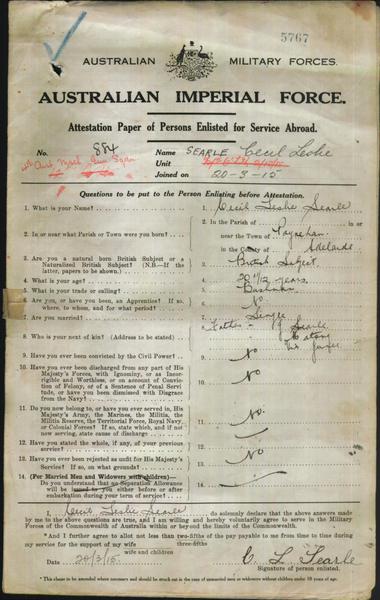 5767
AUSTRALIAN MILITARY FORCES.
AUSTRALIAN IMPERIAL FORCE.
Attestation Paper of Persons Enlisted for Service Abroad.
No. 884 Name SEARLE Cecil Leslie
Unit
Joined on 20-3-15
Questions to be put to the Person Enlisting before Attestation.
1. What is your Name? 1. Cecil Leslie Searle
2. In or near what Parish or Town were you born? 2. In the Parish of in or
near the Town of Payneham
in the County of Adelaide
3. Are you a natural born British Subject or a Naturalized British Subject? (N.B.—If the latter, papers to be shown.) 3. British Subject
4. What is your age? 4. years
5. What is your trade or calling? 5.
6. Are you, or have you been, an Apprentice? If so, where, to whom, and for what period? 6. No
7. Are you married? 7. Single
8. Who is your next of kin? (Address to be stated) 8. Father - Searle
9. Have you ever been convicted by the Civil Power? 9. No
10. Have you ever been discharged from any part of His Majesty's Forces, with Ignominy, or as Incorrigible and Worthless, or on account of Conviction of Felony, or of a Sentence of Penal Servitude, or have you been dismissed with Disgrace from the Navy? 10. No
11. Do you now belong to, or have you ever served in, His Majesty's Army, the Marines, the Militia, the Militia Reserve, the Territorial Force, Royal Navy, or Colonial Forces? If so, state which, and if not now serving, state cause of discharge 11. No.
12. Have you stated the whole, if any, of your previous service? 12.
13. Have you ever been rejected as unfit for His Majesty's Service? If so, on what grounds? 13. No
14. (For Married Men and Widowers with children)—
Do you understand that no Separation Allowance will be issued to you either before or after embarkation during your term of service? 14.
I, Cecil Leslie Searle do solemnly declare that the above answers made
by me to the above questions are true, and I am willing and hereby voluntarily agree to serve in the Military
Forces of the Commonwealth of Australia within or beyond the limits of the Commonwealth.
* And I further agree to allot not less than two-fifths three-fifths of the pay payable to me from time to time
during my service for the support of my wife wife and children
Date 20/3/15. C. L. Searle
Signature of person enlisted.